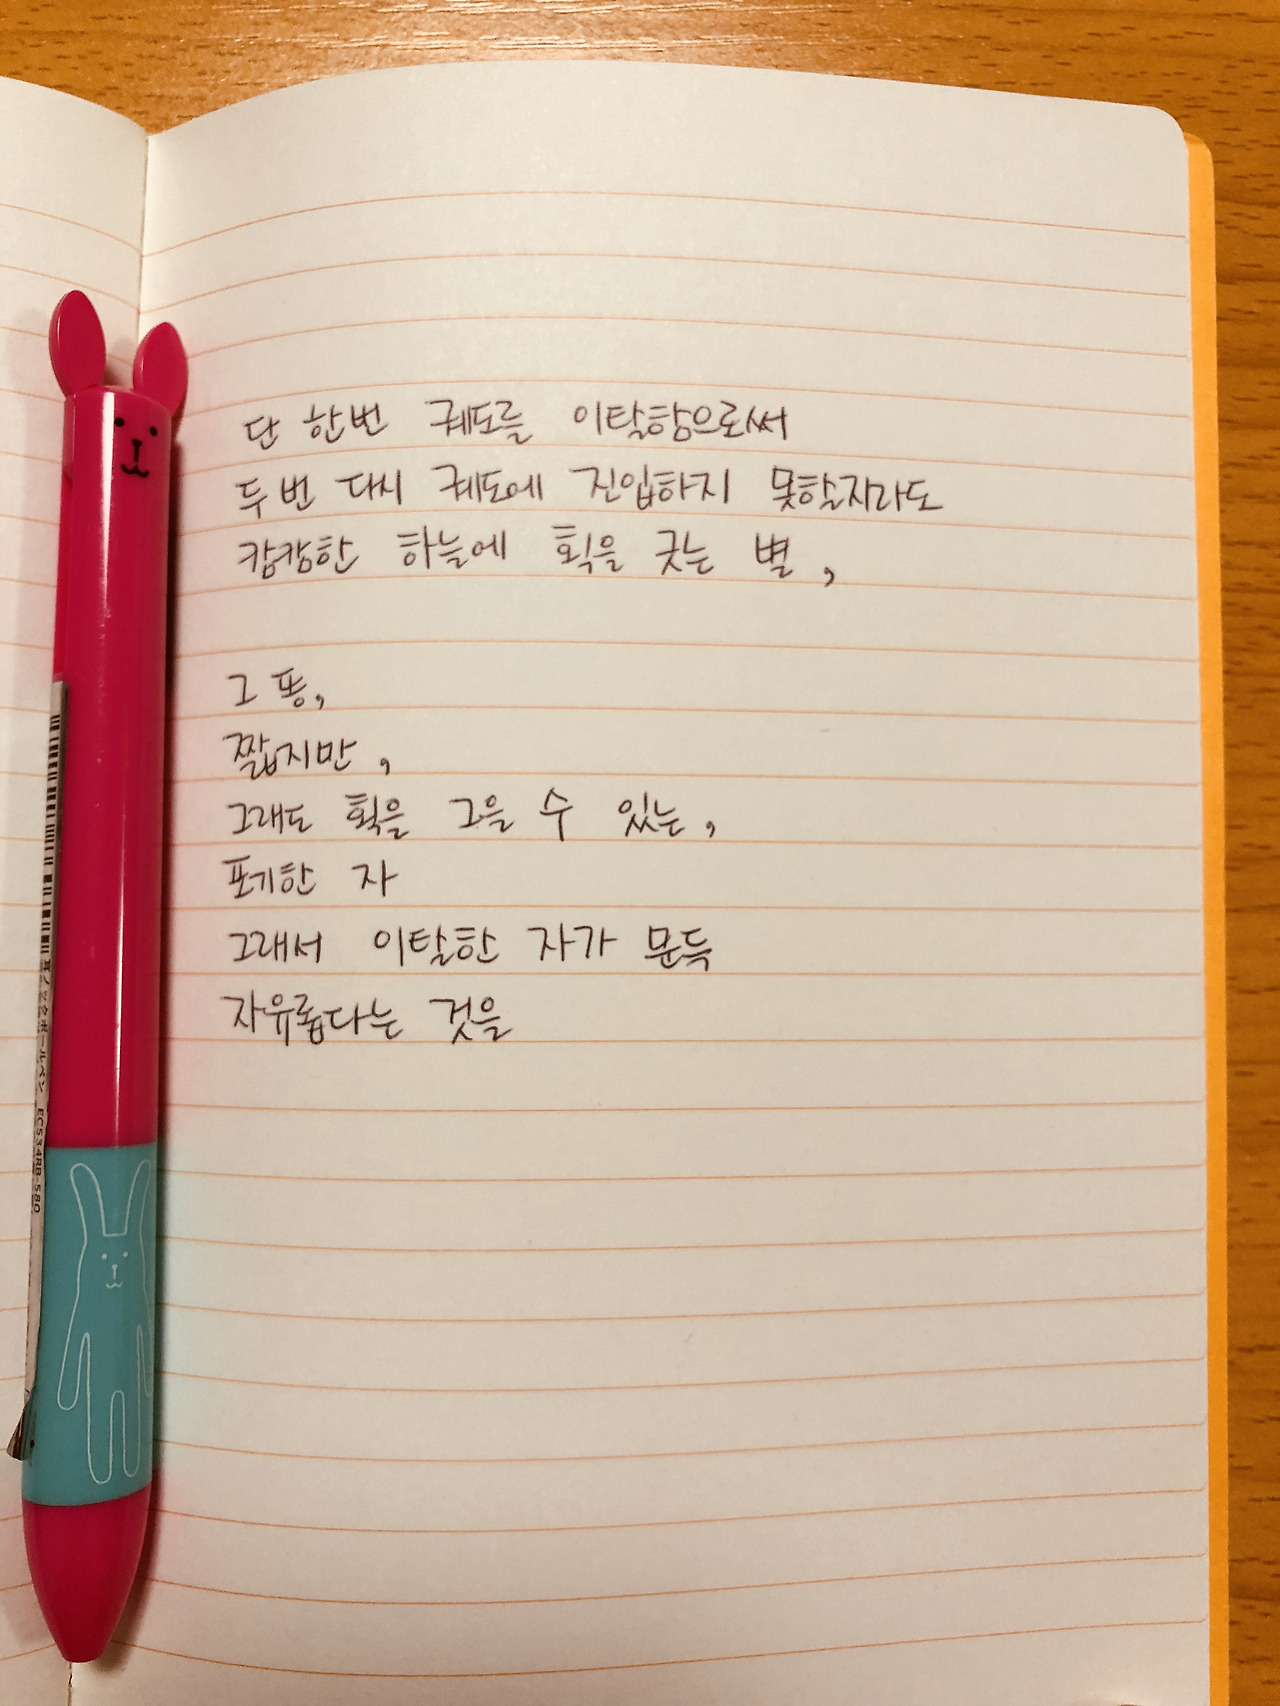 단 한번 궤도를 이탈함으로써
두 번 다시 궤도에 진입하지 못할지라도
캄캄한 하늘에 획을 긋는 별,
그 똥,
짧지만,
그래도 획을 그을 수 있는,
포기한 자
그래서 이탈한 자가 문득
자유롭다는 것을
耳ノック ボールペン EC534RB-580